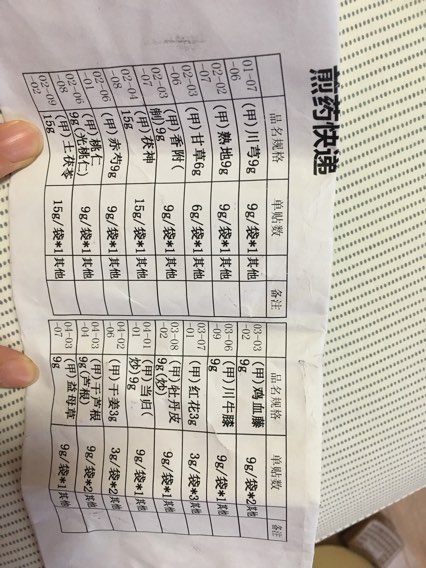 煎药快递
品名规格 单贴数 备注
01-07 (甲)川芎9g 9g/袋*1 其他
-06
02-02 (甲)熟地9g 9g/袋*1 其他
-07
02-03 (甲)甘草6g 6g/袋*1 其他
-06
02-03 (甲)香附( 9g/袋*1 其他
-07 制)9g
02-04 (甲)茯神 15g/袋*1 其他
-08 15g
02-06 (甲)赤芍9g 9g/袋*1 其他
-01
02-06 (甲)桃仁 9g/袋*1 其他
-08 9g(光桃仁)
02-09 (甲)土茯苓 15g/袋*1 其他
-02 15g
品名规格 单贴数 备注
03-03 (甲)鸡血藤 9g/袋*2 其他
-02 9g
03-06 (甲)川牛膝 9g/袋*1 其他
-09 9g
03-07 (甲)红花3g 3g/袋*3 其他
-01
03-08 (甲)牡丹皮 9g/袋*1 其他
-02 9g(炒)
04-01 (甲)当归( 9g/袋*1 其他
-01 炒)9g
04-02 (甲)干姜3g 3g/袋*2 其他
-06
04-03 (甲)干芦根 9g/袋*2 其他
-04 9g(芦根)
04-03 (甲)益母草 9g/袋*1 其他
-07 9g